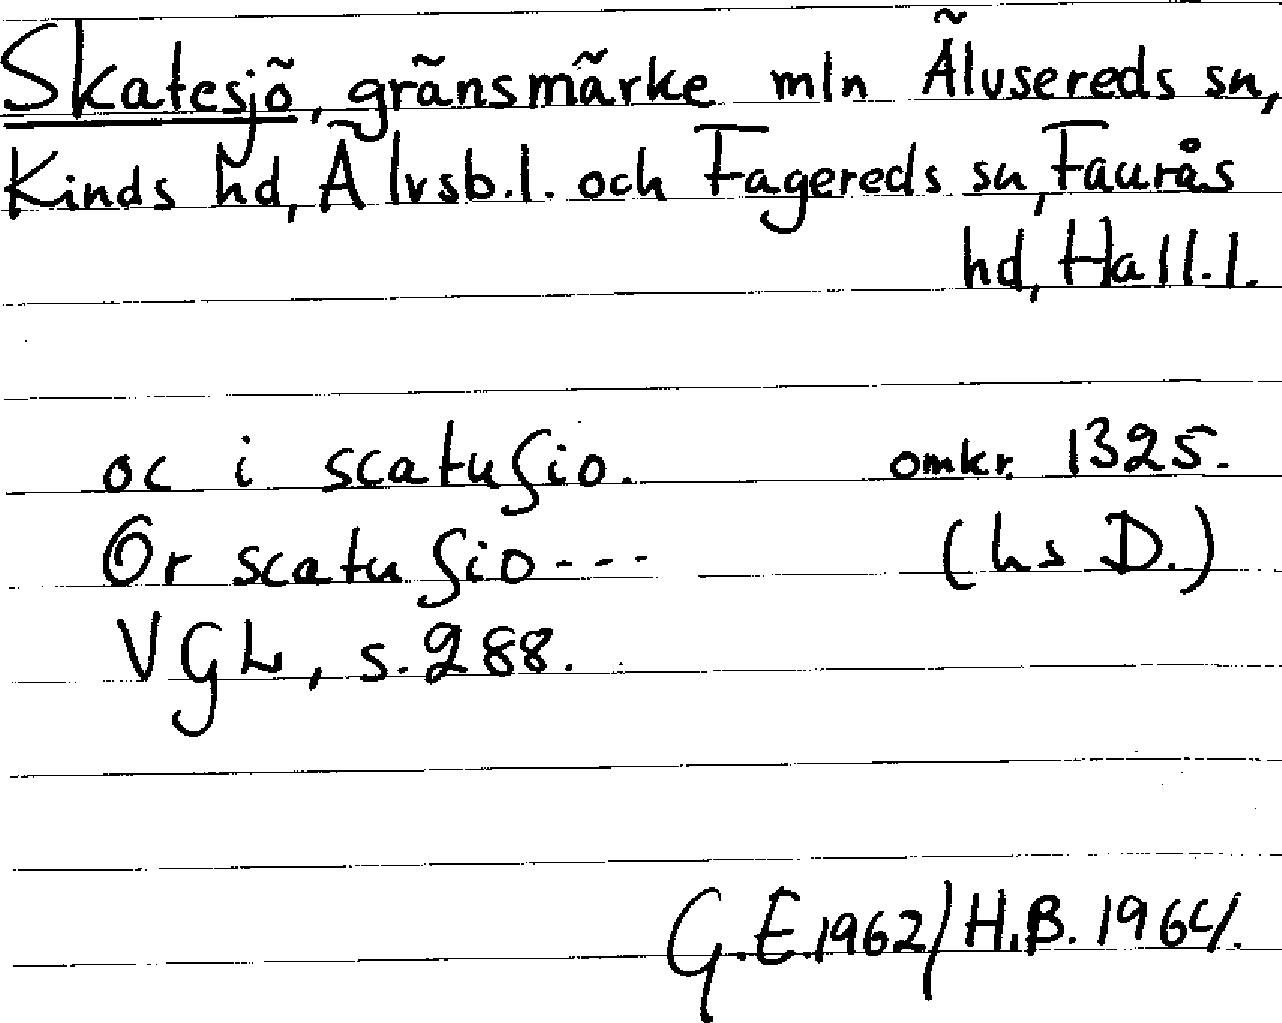 Skatesjö, gränsmärke mln Älvsereds sn,
Kinds hd, Älvsb.l. och Fagereds sn, Faurås
hd, Hall.l.
oc i scatuſio. omkr. 1325.
Or scatu ſio--- (hs D.)
VGL, s. 288.
G.E. 1962/H.B. 1964.